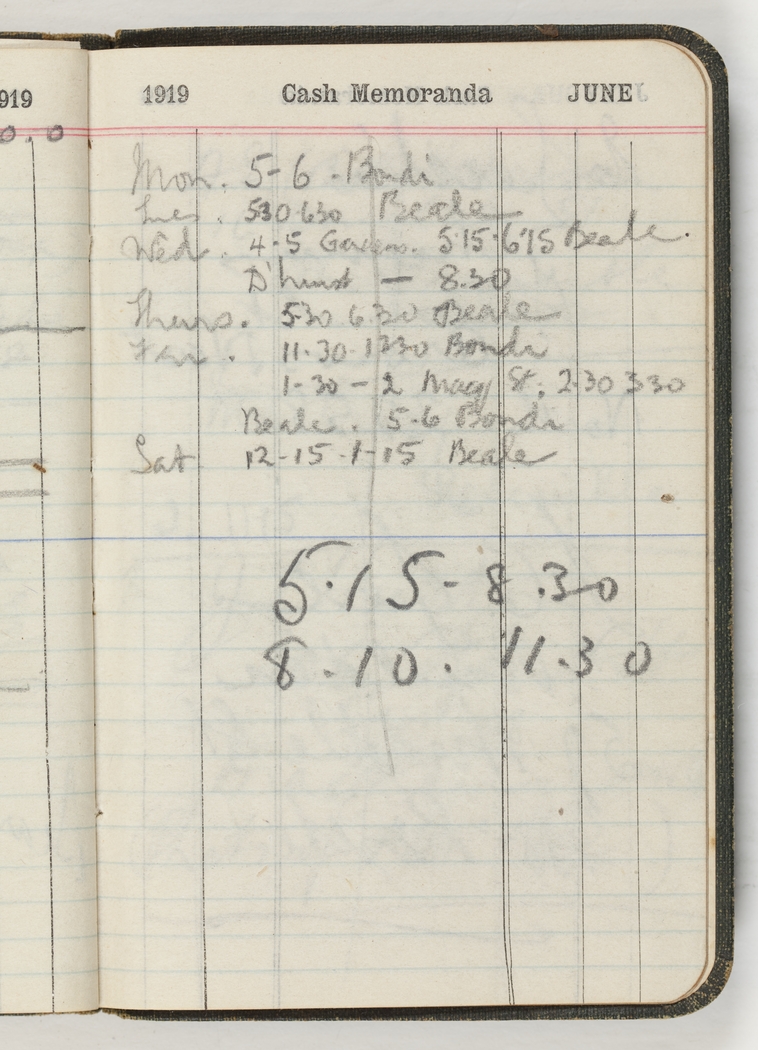 919
0.0
1919 Cash Memoranda JUNE
Mon. 5-6. Bondi
Tues. 530.630 Beale
Wed. 4-5 5.15.615 Beale.
D'hurst — 8.30
Thurs. 530 630 Beale
Fri. 11.30.1230 Bondi
1-30 - 2 Macq St; 2.30 330
Beale. 5-6 Bondi
Sat 12-15-1-15 Beale
5.15-8.30
8.10. 11.30